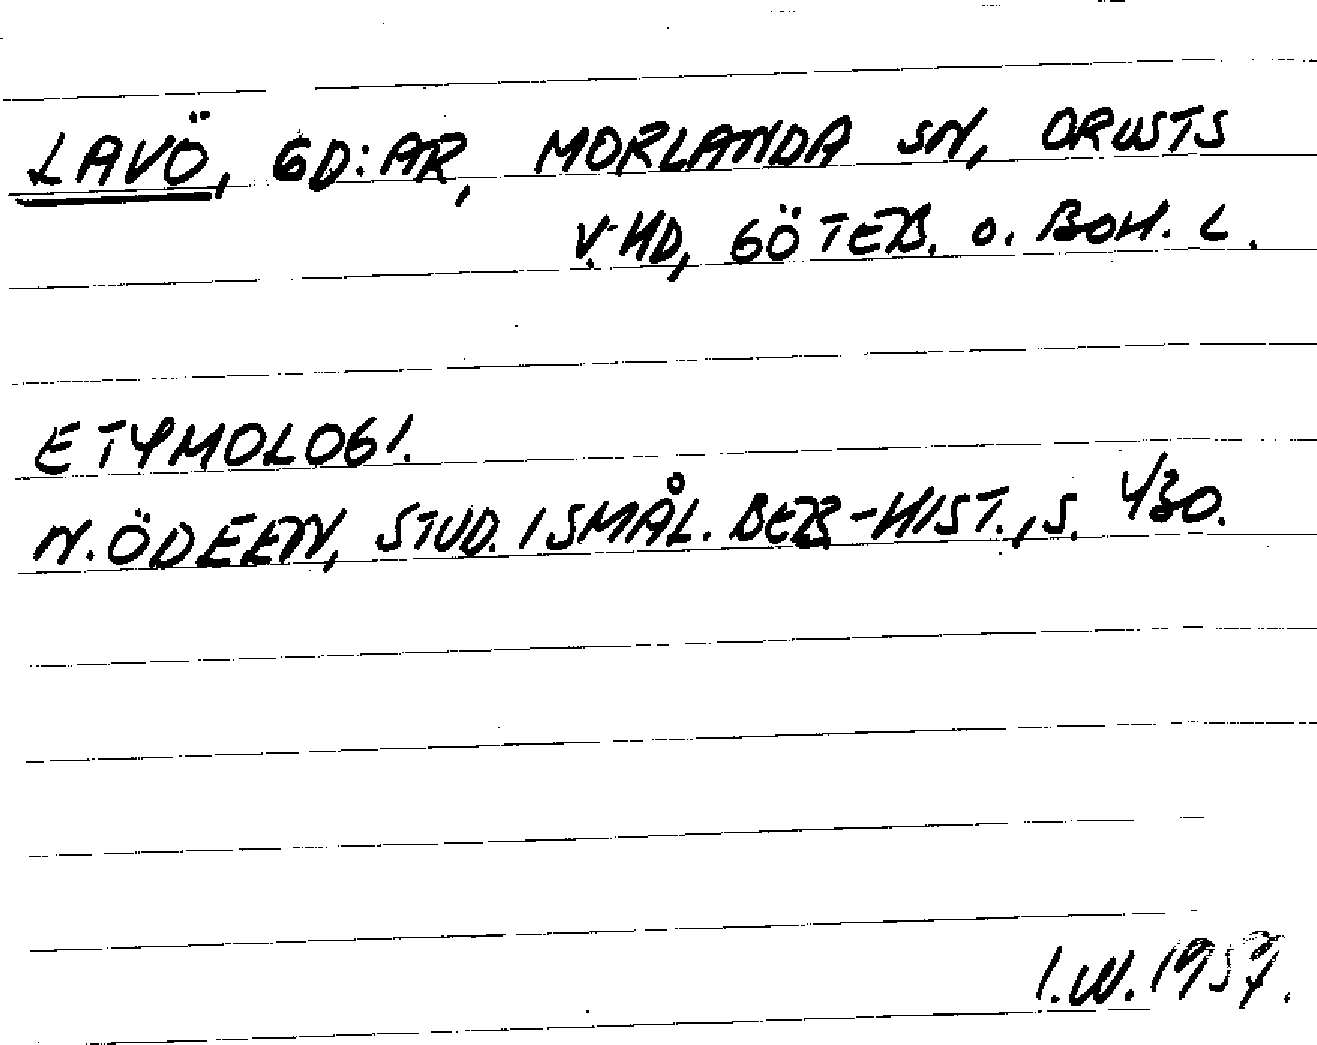 LAVÖ, GD:AR, MORLANDA SN, ORUSTS
V. HD, GÖTEB. O. BOH. L.
ETYMOLOGI.
N. ÖDEEN, STUD. I SMÅL. BEB-HIST., S. 430.
I.W. 1957.